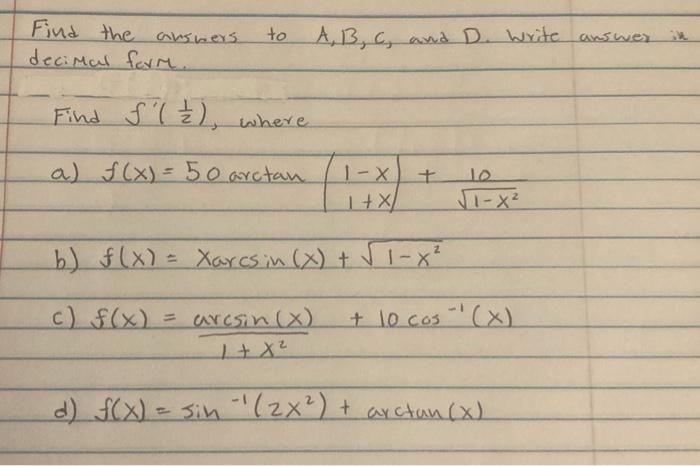 Find the answers to A, B, C, and D. Write answer in
decimal form.
Find f'(1/2), where
a) f(x) = 50 arctan (1-x / 1+x) + 10 / √1-x²
b) f(x) = xarcsin(x) + √1-x²
c) f(x) = arcsin(x) / 1+x² + 10 cos⁻¹(x)
d) f(x) = sin⁻¹(2x²) + arctan(x)